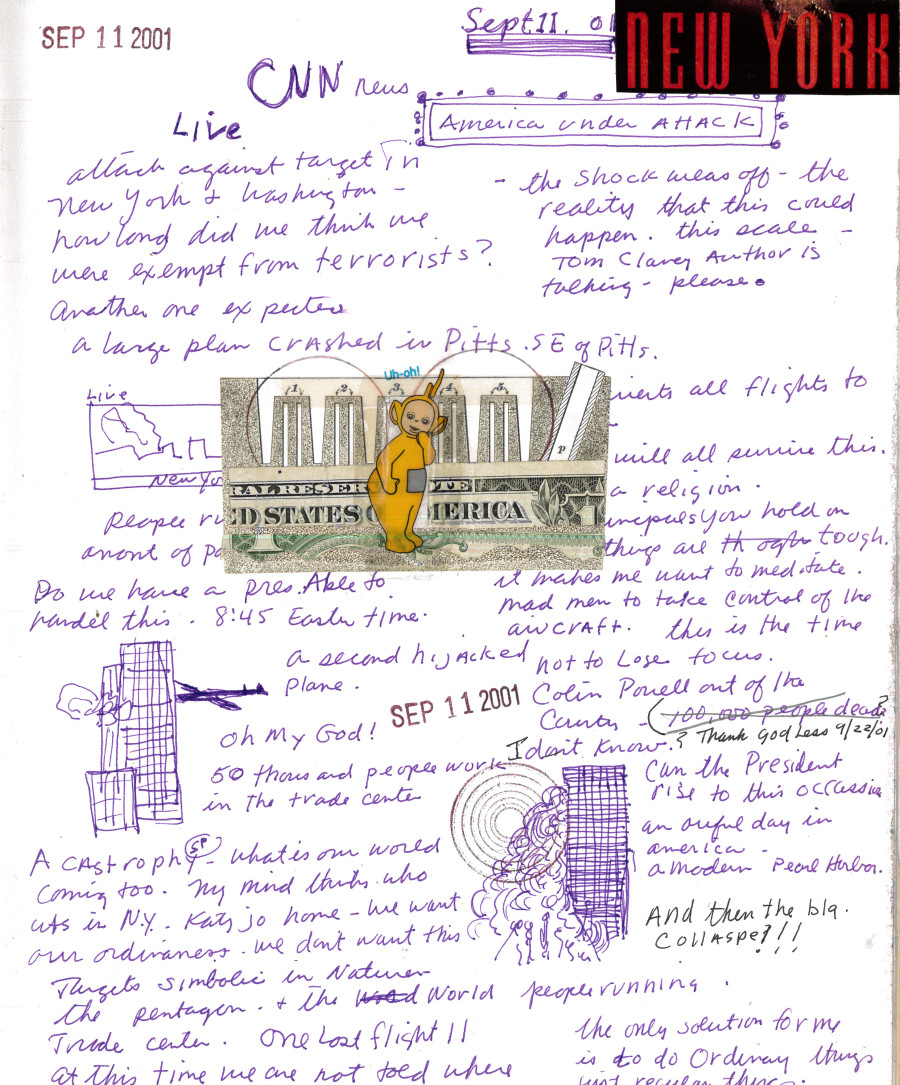 SEP 11 2001
Sept 11. 01
NEW YORK
CNN news
Live
America under Attack
attack against target in
new york & washington -
how long did we think we
were exempt from terrorists?
Another one expected
- the shock wears off - the
reality that this could
happen. this scale -
Tom Clancy Author is
talking - please.
a large plan crashed in Pitts. SE of Pitts.
Live
New Yo
Uh-oh!
1 2 3 4 5
P
RAL RESERVE NOTE
D STATES OF AMERICA
1
all flights to
will all survive this.
a religion.
you hold on
things are tough.
people ru
amont of pa
Do we have a pres. Able to
handel this. 8:45 Easter time.
it makes me want to meditate.
mad men to take control of the
aircraft. this is the time
not to Lose focus.
a second hijacked
plane.
SEP 11 2001
Oh My God!
50 thousand people work
in the trade center
Colin Powell out of the
Country - (100,000 people dead?
I don't know.? Thank God Less 9/22/01
Can the President
rise to this occassion
an awful day in
america -
a modern Pearl Harbor.
And then the blg.
Collaspe?!!!
A castrophy SP - what is our world
coming too. My mind thinks who
in N.Y. Katy jo home - we want
our ordinaness. we don't want this
Targets simbolic in Nature
the pentagon. & the World
Trade center. One Lost flight 11
at this time we are not told where
people running.
the only solution for me
is to do Ordinary things
just regular